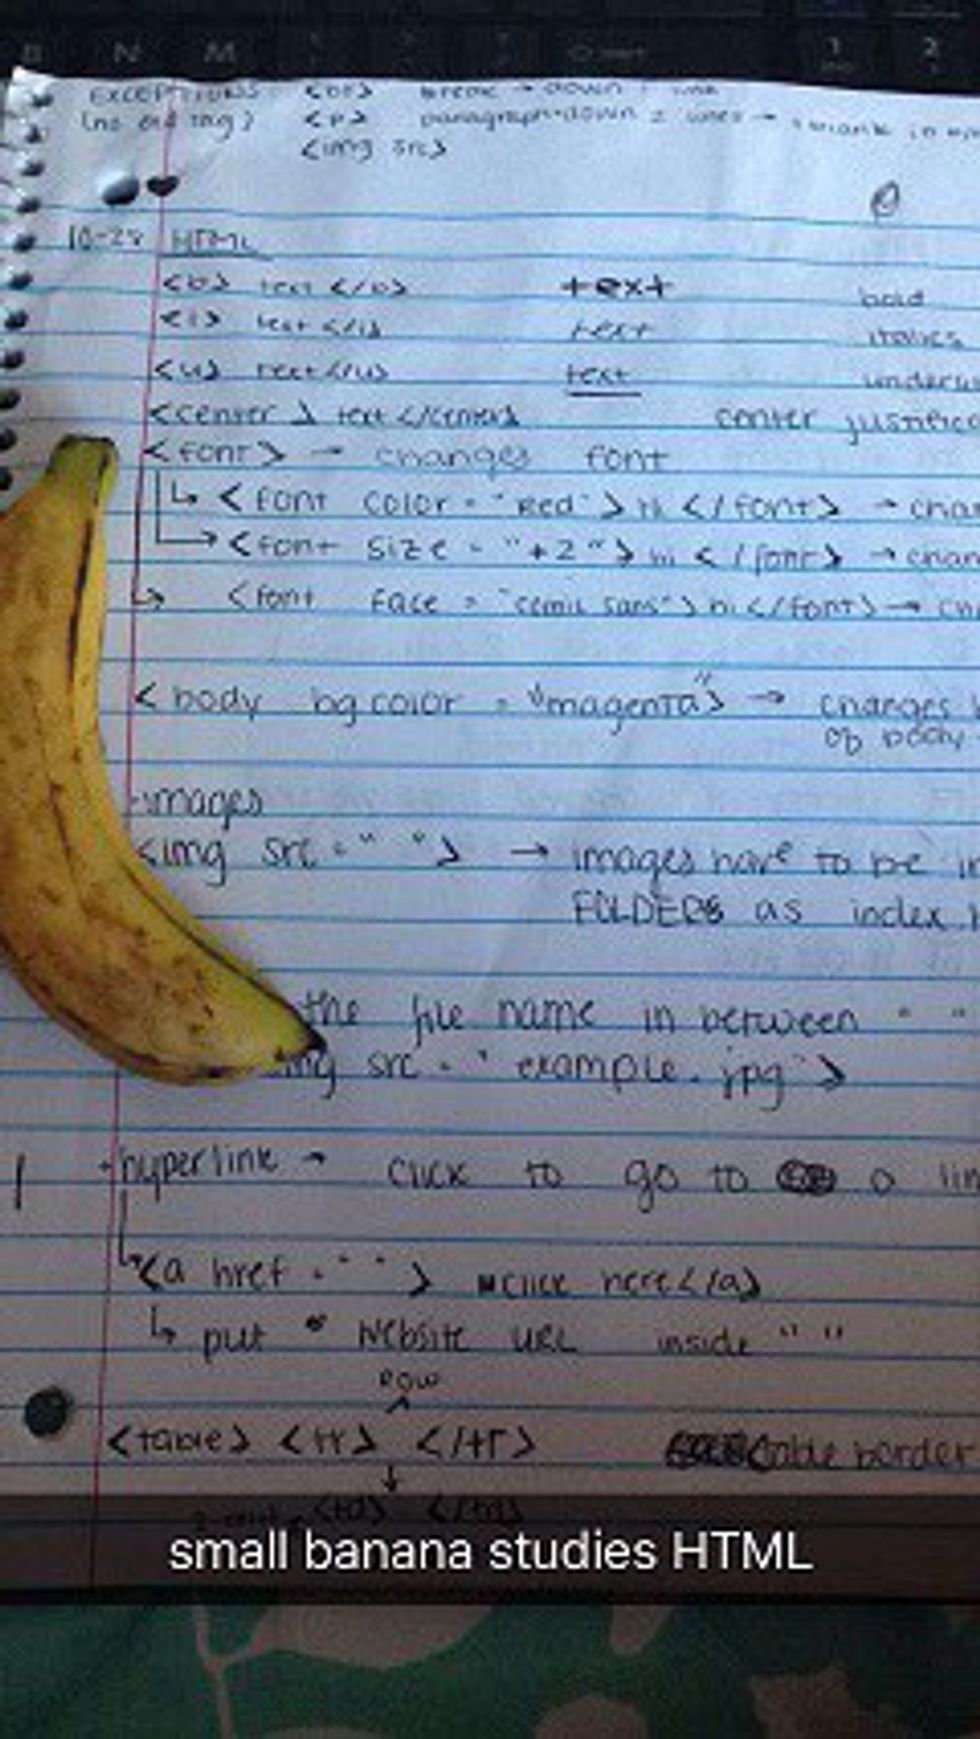 N M
1 2
EXCEPTIONS <br> break → down 1 line
(no end tag) <p> paragraph→down 2 lines →
<img src>
10-28 HTML
<b> text </b> text bold
<i> text </i> text italics
<u> text </u> text
<center> text </center> center
<font> → changes font
↳ <font color = "red"> hi </font> →
→ <font size = "+2"> hi </font> →
→ <font face = "comic sans"> hi </font> →
<body bg color = "magenta"> → changes
of body
·images
<img src = " "> → images have to be in
FOLDERS as index.
the file name in between " "
src = "example.jpg">
·hyperlink → click to go to a
<a href = " "> click here</a>
↳ put website URL inside " "
row
^
<table> <tr> </tr> table border
↓
<td> </td>
small banana studies HTML